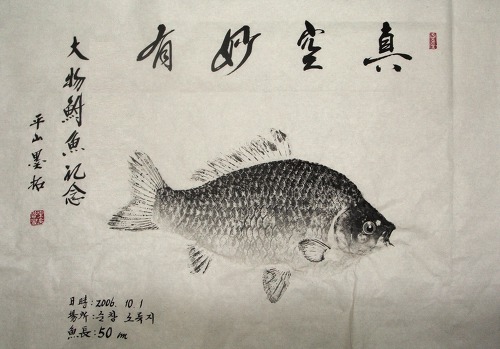 真空妙有
大物鮒魚記念
平山墨拓
日時:2006. 10. 1
場所:순창
魚長:50 cm